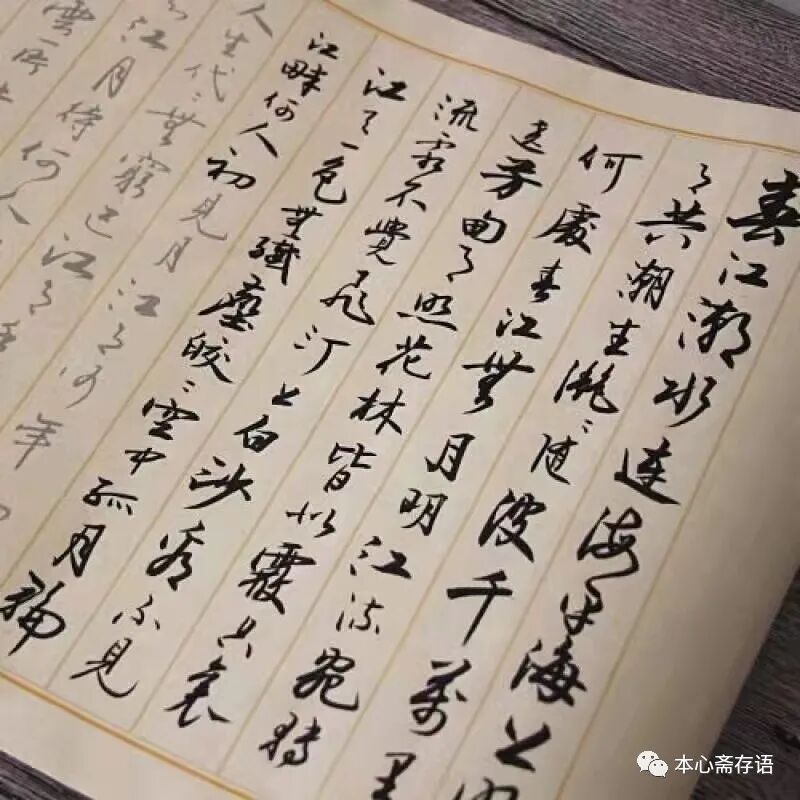 春江潮水連海平海上明
月共潮生灧〻随波千萬里
何處春江無月明江流宛轉
遶芳甸月照花林皆似霰空裏
流霜不覺飛汀上白沙看不見
江天一色無纖塵皎〻空中孤月輪
江畔何人初見月江月何年初
人生代〻無窮已江月年
江月待何人
雲一片
本心斋存语